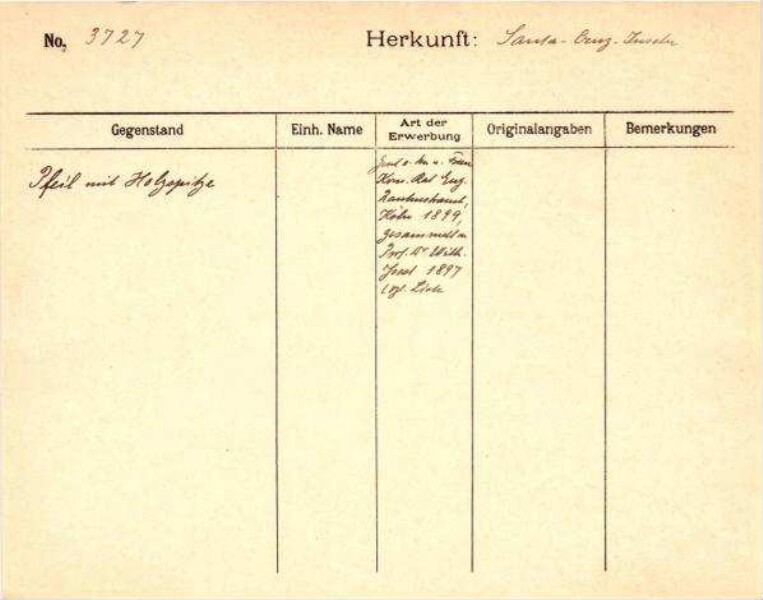 No. 3727 Herkunft: Santa-Cruz-Inseln
Gegenstand Einh. Name Art der Erwerbung Originalangaben Bemerkungen
Pfeil mit Holzspitze
v. u. Frau
Kom. Rat Eug.
Rautenstrauch,
Köln 1899,
gesammelt v.
Prof. Dr Wilh.
Joest 1897
vgl. Liste